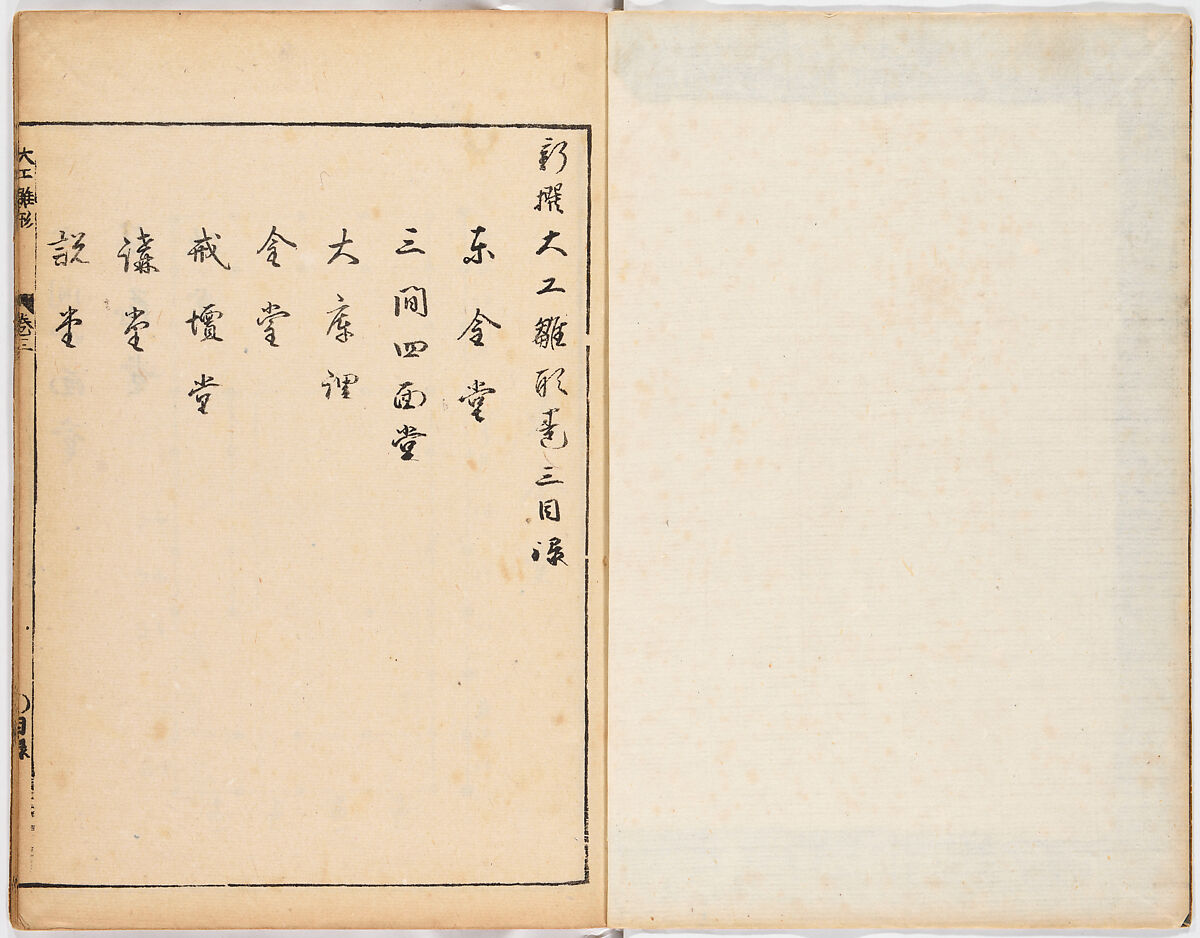 新撰大工雛形巻三目録
東金堂
三間四面堂
大庫裡
金堂
戒壇堂
講堂
説堂
大工雛形
巻三
目録